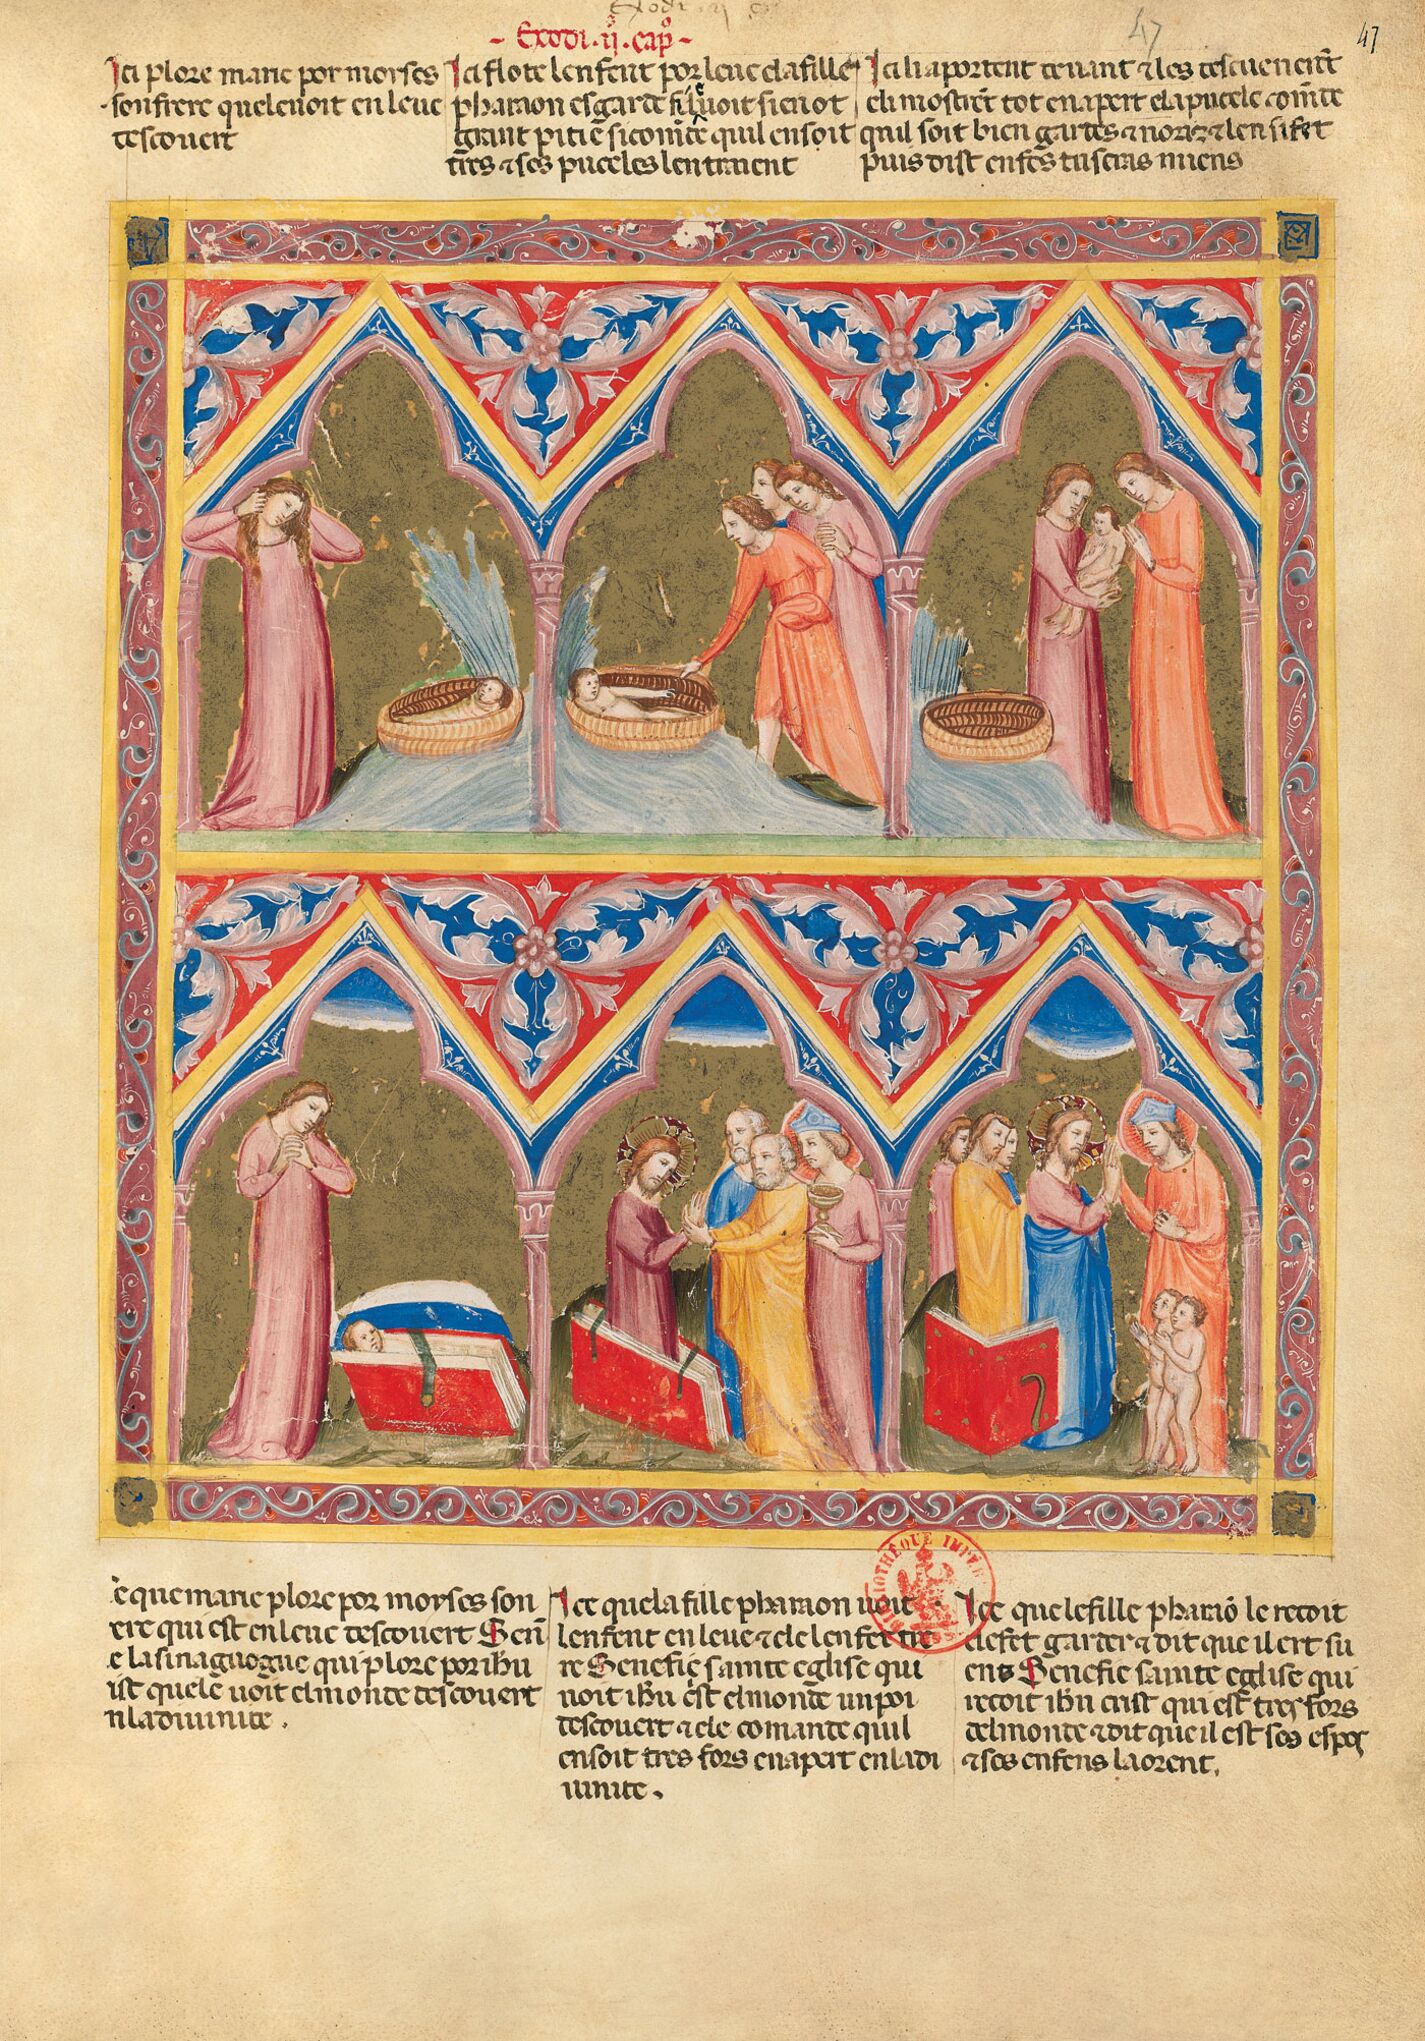 Exodi ij
47
47
- Exodi · ij · cap̊ -
Ici plore marie por moyses
son frere que le voit en leue
descouert
Ici flote lenfent por leue & la fille
pharaon esgarde si le voit si en ot
grant pitie si comāde quil en soit
trės & ses puceles len traient
Ici li aportent devant & les descueuerēt
& li mostrēt tot en apert & la pucele comāde
quil soit bien gardes & noriz & len si fet
puis dist enfes tu seras miens
e que marie plore por moyses son
rere qui est en leue descouert Senfi
e la sinaguogue qui plore por ihū
ist quele voit el monde descouert
n la diuinite .
Ice que la fille pharaon voit
lenfent en leue & ele len fet tre
re Senefie sainte eglise qui
voit ihū c̄st el monde un poi
descouert & ele comande quil
en soit tres fors en apert en la di
uinite .
Ice que le fille phariō le recoit
& le fet garder & dit que il ert su
ens Senefie sainte eglise qui
recoit ihū crist qui est tres fors
del monde & dit que il est ses espos
& ses enfens laorent .
BIBLIOTHÈQUE IMPÉR